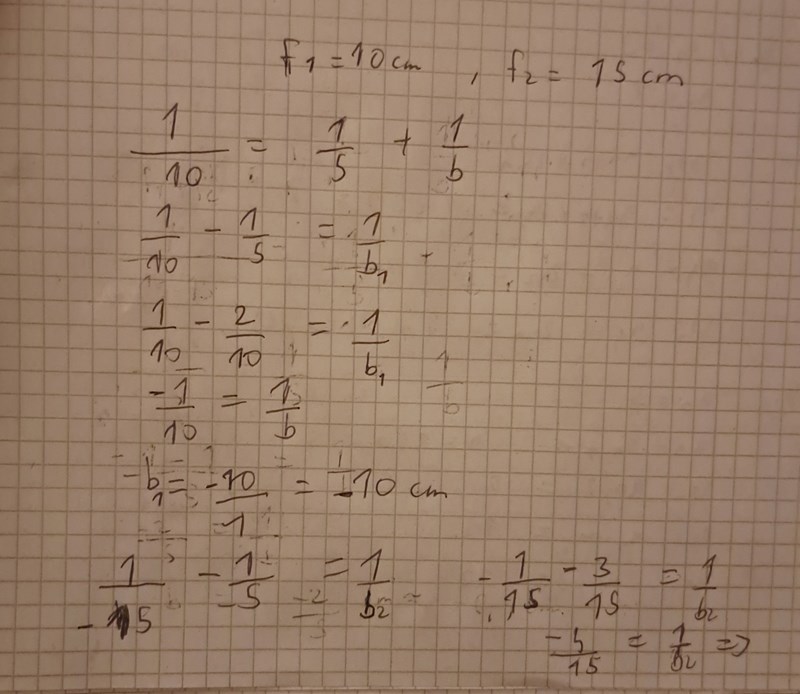 f1 = 10 cm , f2 = 15 cm
1/10 = 1/5 + 1/b
1/10 - 1/5 = 1/b1
1/10 - 2/10 = 1/b1
-1/10 = 1/b
-b1 = -10/1 = -10 cm
1/-15 - 1/5 = 1/b2
-1/15 - 3/15 = 1/b2
-4/15 = 1/b2 =>